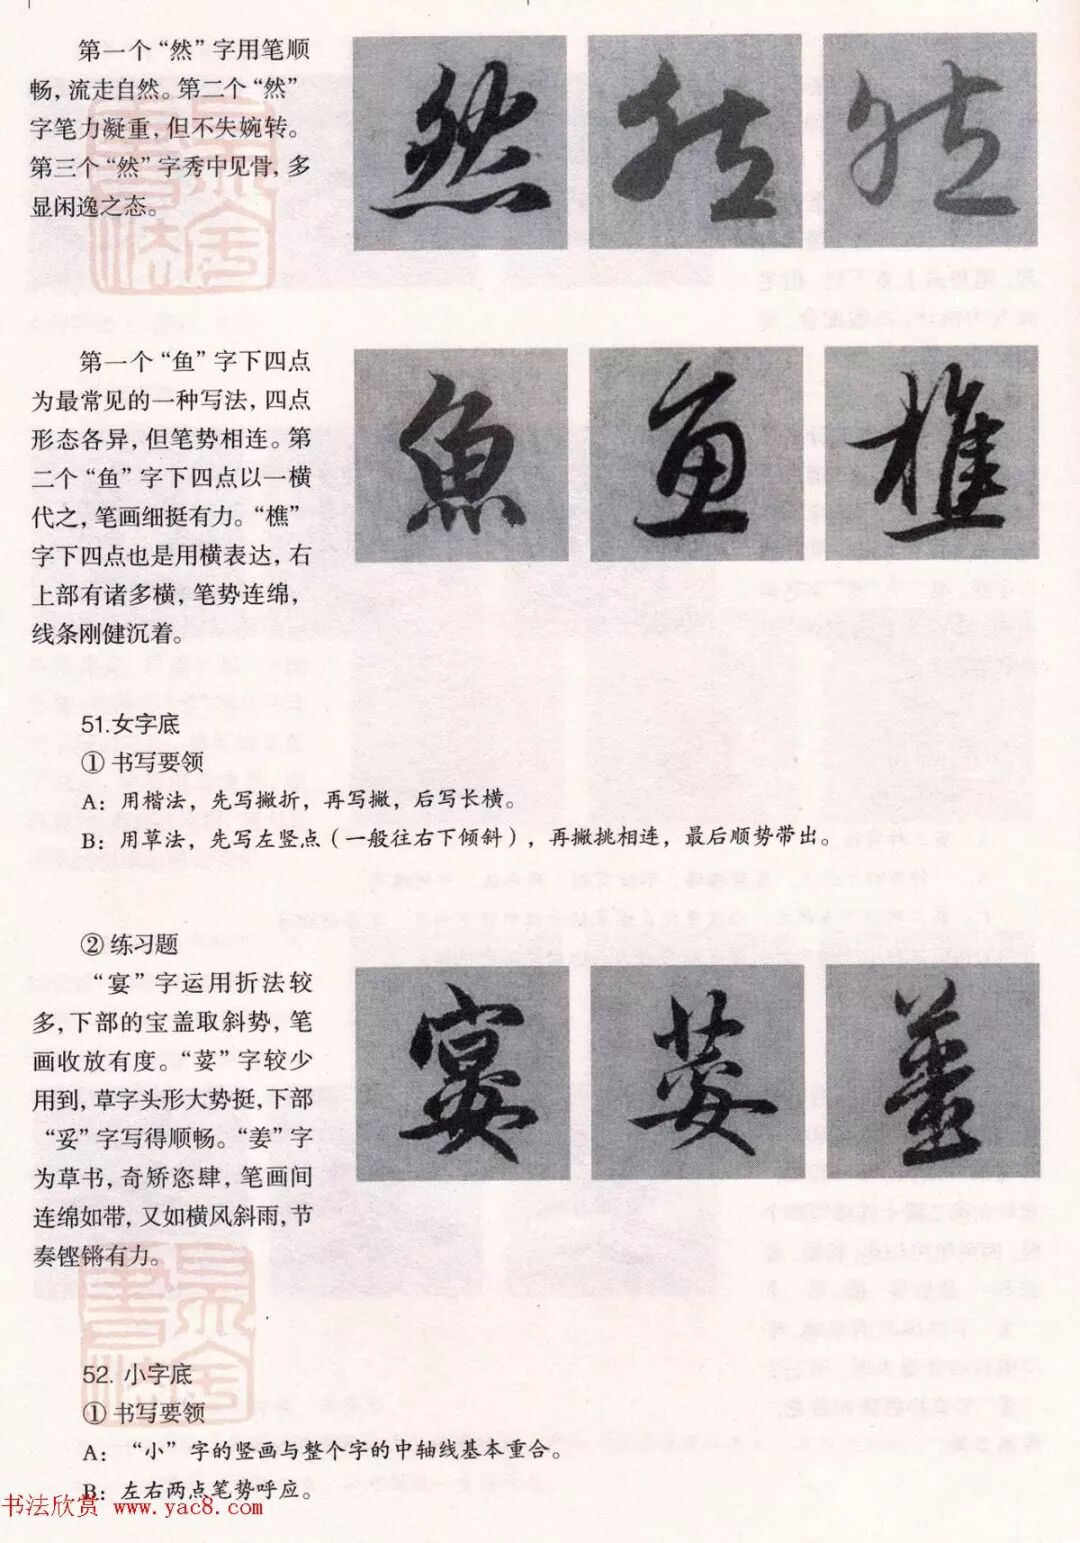 第一个“然”字用笔顺
畅，流走自然。第二个“然”
字笔力凝重，但不失婉转。
第三个“然”字秀中见骨，多
显闲逸之态。
然 然 然
第一个“鱼”字下四点
为最常见的一种写法，四点
形态各异，但笔势相连。第
二个“鱼”字下四点以一横
代之，笔画细挺有力。“樵”
字下四点也是用横表达，右
上部有诸多横，笔势连绵，
线条刚健沉着。
魚 魚 樵
51.女字底
① 书写要领
A：用楷法，先写撇折，再写撇，后写长横。
B：用草法，先写左竖点（一般往右下倾斜），再撇挑相连，最后顺势带出。
② 练习题
“宴”字运用折法较
多，下部的宝盖取斜势，笔
画收放有度。“荽”字较少
用到，草字头形大势挺，下部
“妥”字写得顺畅。“姜”字
为草书，奇矫恣肆，笔画间
连绵如带，又如横风斜雨，节
奏铿锵有力。
宴 荽 姜
52. 小字底
① 书写要领
A：“小”字的竖画与整个字的中轴线基本重合。
B：左右两点笔势呼应。
书法欣赏 www.yac8.com